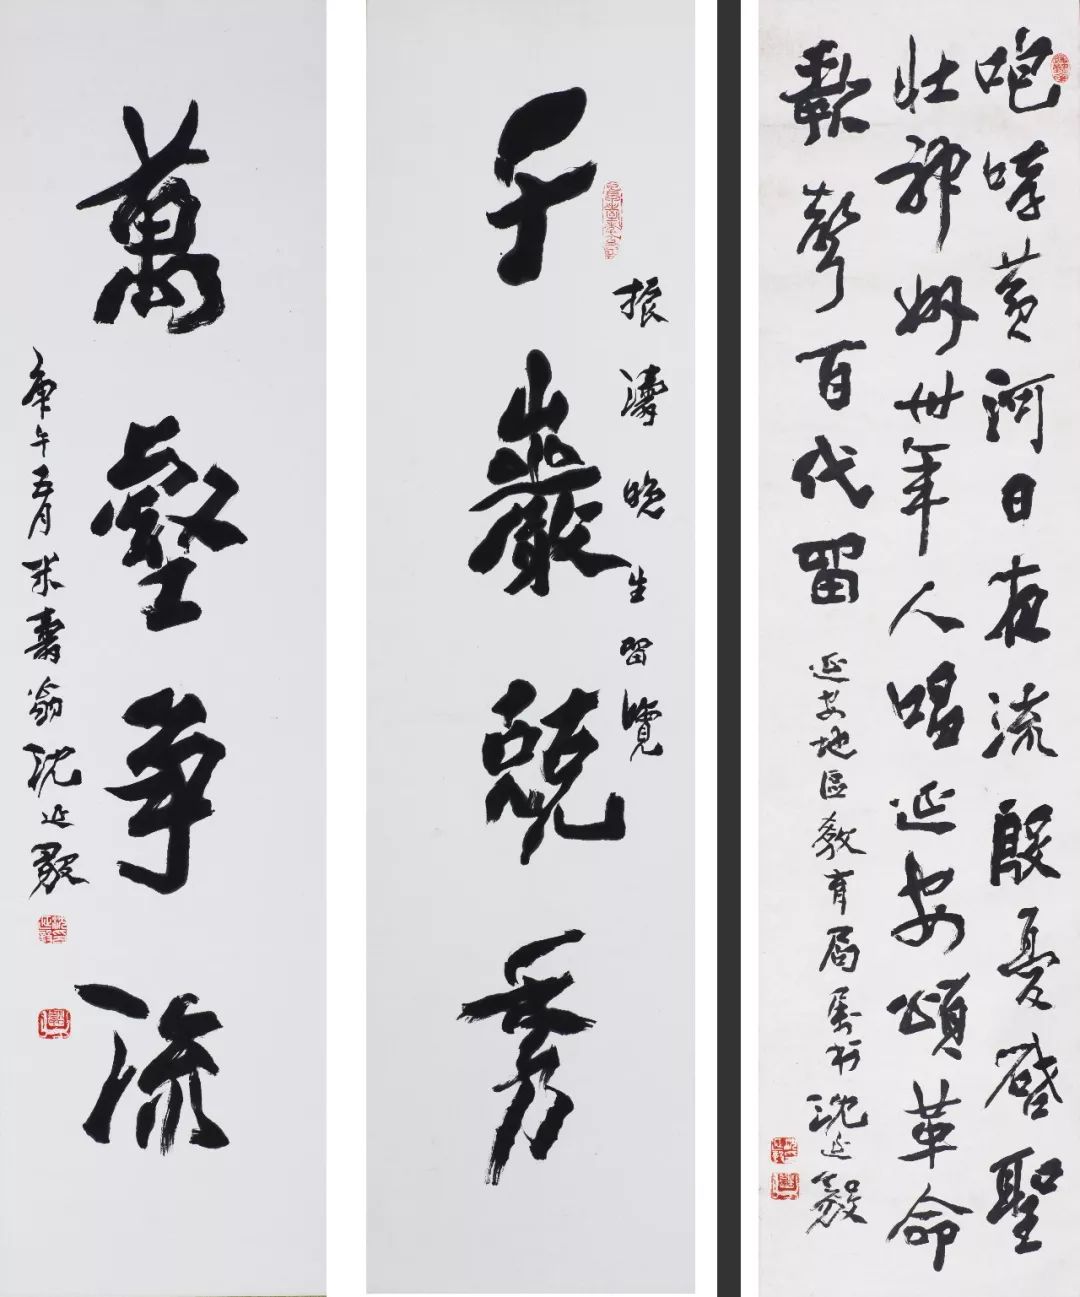 咆哮黃河日夜流殷憂啓聖
壯神州卅年人唱延安頌革命
歌聲百代留
延安地區教育局屬 沈延毅
振濤晚生留覽
千巖競秀
萬壑爭流
庚午五月米壽翁沈延毅